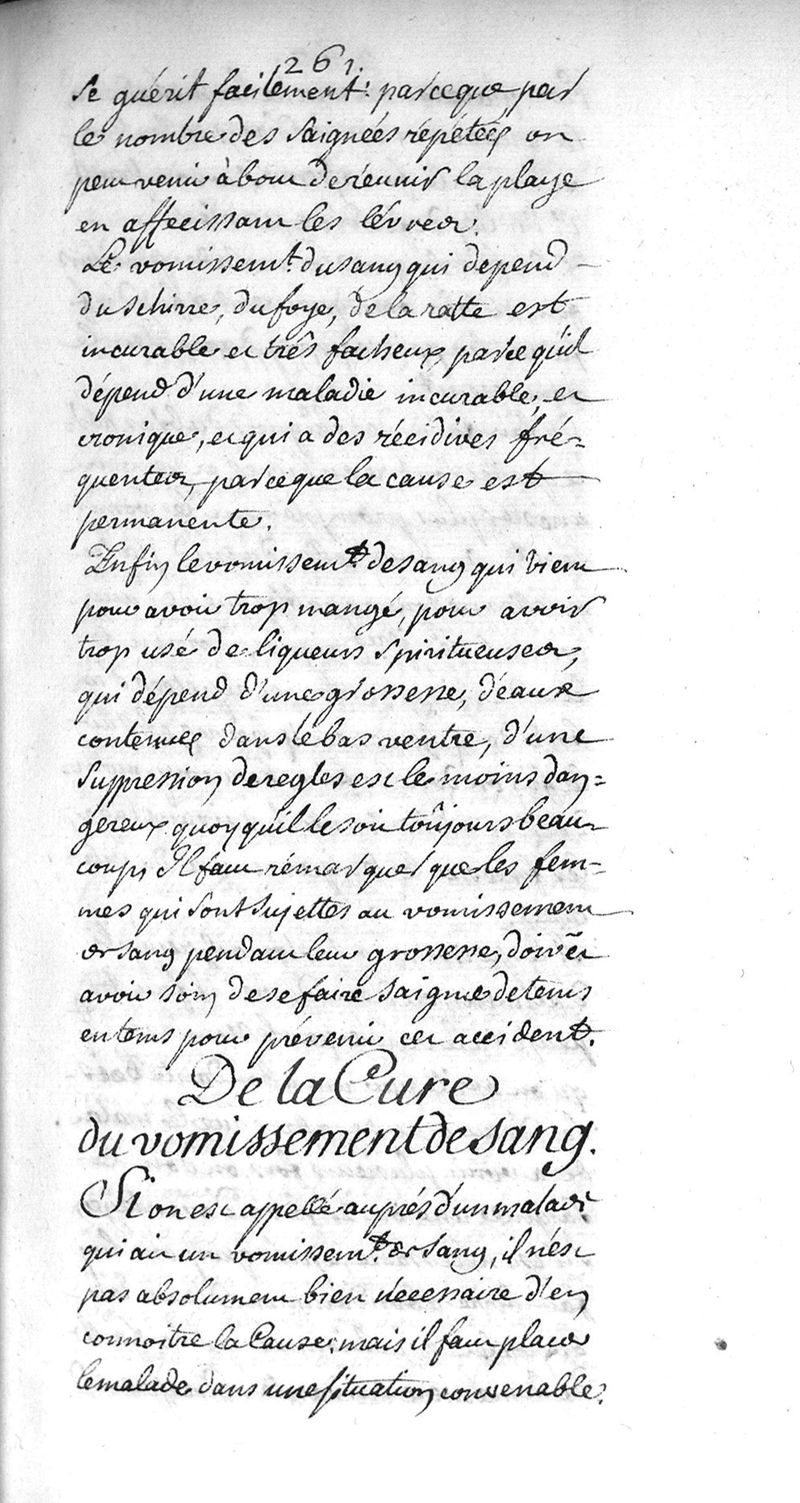 261.
se guérit facilement: parceque par
le nombre des saignées répétées on
peut venir à bout de réunir la playe
en affecissant les lévres.
Le vomissemt. du sang qui dépend
du schirre, du foye, de la ratte est
incurable et três facheux, parce qu'il
dépend d'une maladie incurable, et
cronique, et qui a des récidives fré=
quentes, parceque la cause est
permanente.
Enfin le vomissemt. de sang qui vient
pour avoir trop mangé, pour avoir
trop usé de liqueurs spiritueuses,
qui dépend d'une grossesse, d'eaux
contenues dans le bas ventre, d'une
suppression de regles est le moins dan=
gereux quoy qu'il le soit toûjours beau-
coup. Il faut rémarquer que les fem-
mes qui sont sujettes au vomissement
de sang pendant leur grossesse, doivēt
avoir soin de se faire saigner de tems
en tems pour prévenir cet accident.
De la Cure
du vomissement de sang.
Si on est appellé auprés d'un malade
qui ait un vomissemt. de sang, il n'est
pas absolument bien nécessaire d'en
connoitre la Cause; mais il faut placer
le malade dans une situation convenable.